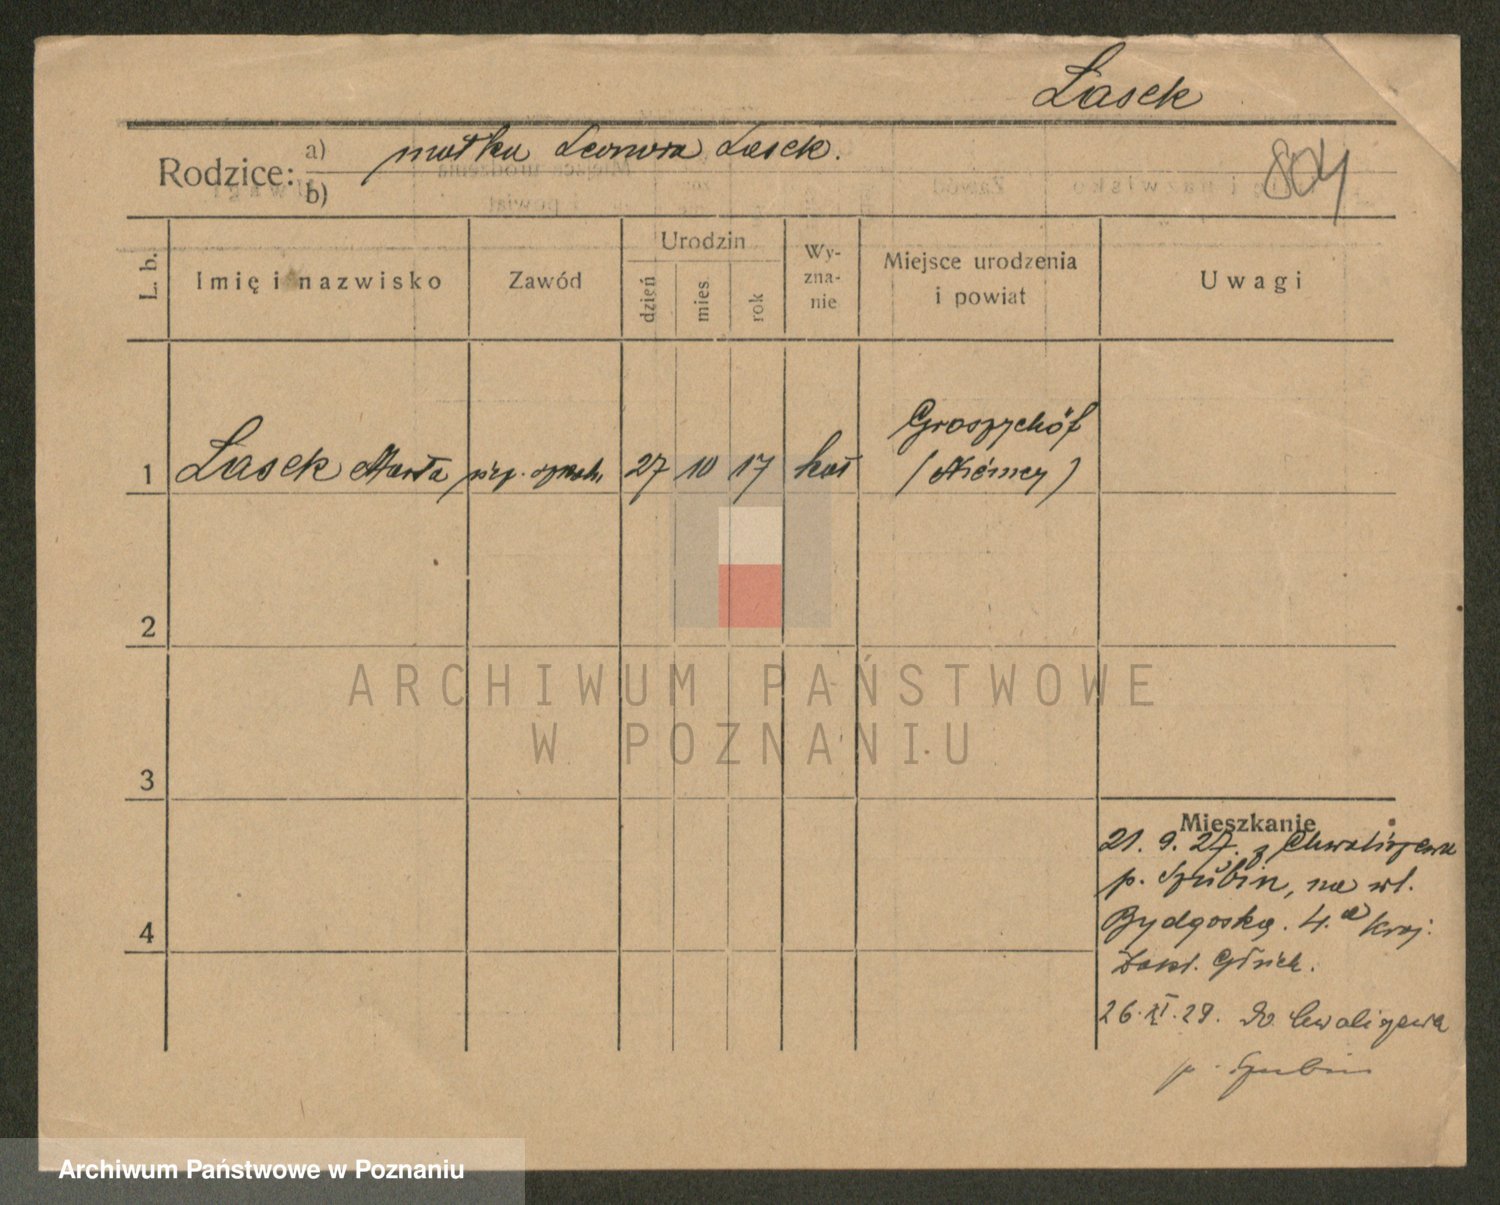 Lasek
804
Rodzice: a) matka Leonora Lasek.
b)
L. b.
Imię i nazwisko
Zawód
Urodzin
dzień
mies.
rok
Wy-
zna-
nie
Miejsce urodzenia
i powiat
Uwagi
1 Lasek Marta 27 10 17 kat
(Niemcy)
2
3
4
Mieszkanie
21. 9. 27. z Chwaliszewa
p. Szubin, na ul.
Bydgoską. 4. a Kraj.
Zakł. Głuch.
26. XI. 29. do Chwaliszewa
p. Szubin
ARCHIWUM PAŃSTWOWE
W POZNANIU
Archiwum Państwowe w Poznaniu